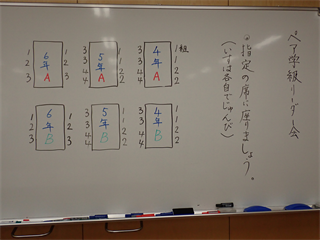 ペア学級リーダー会
・指定の席に座りましょう。
(いすは各自でじゅんび)
1組
1
2
2
4年A
3
3
4
4
1
1
2
2
5年A
3
3
4
4
1
2
3
6年A
1
2
3
1
1
2
2
4年B
3
3
4
4
1
1
2
2
5年B
3
3
4
4
1
2
3
6年B
1
2
3